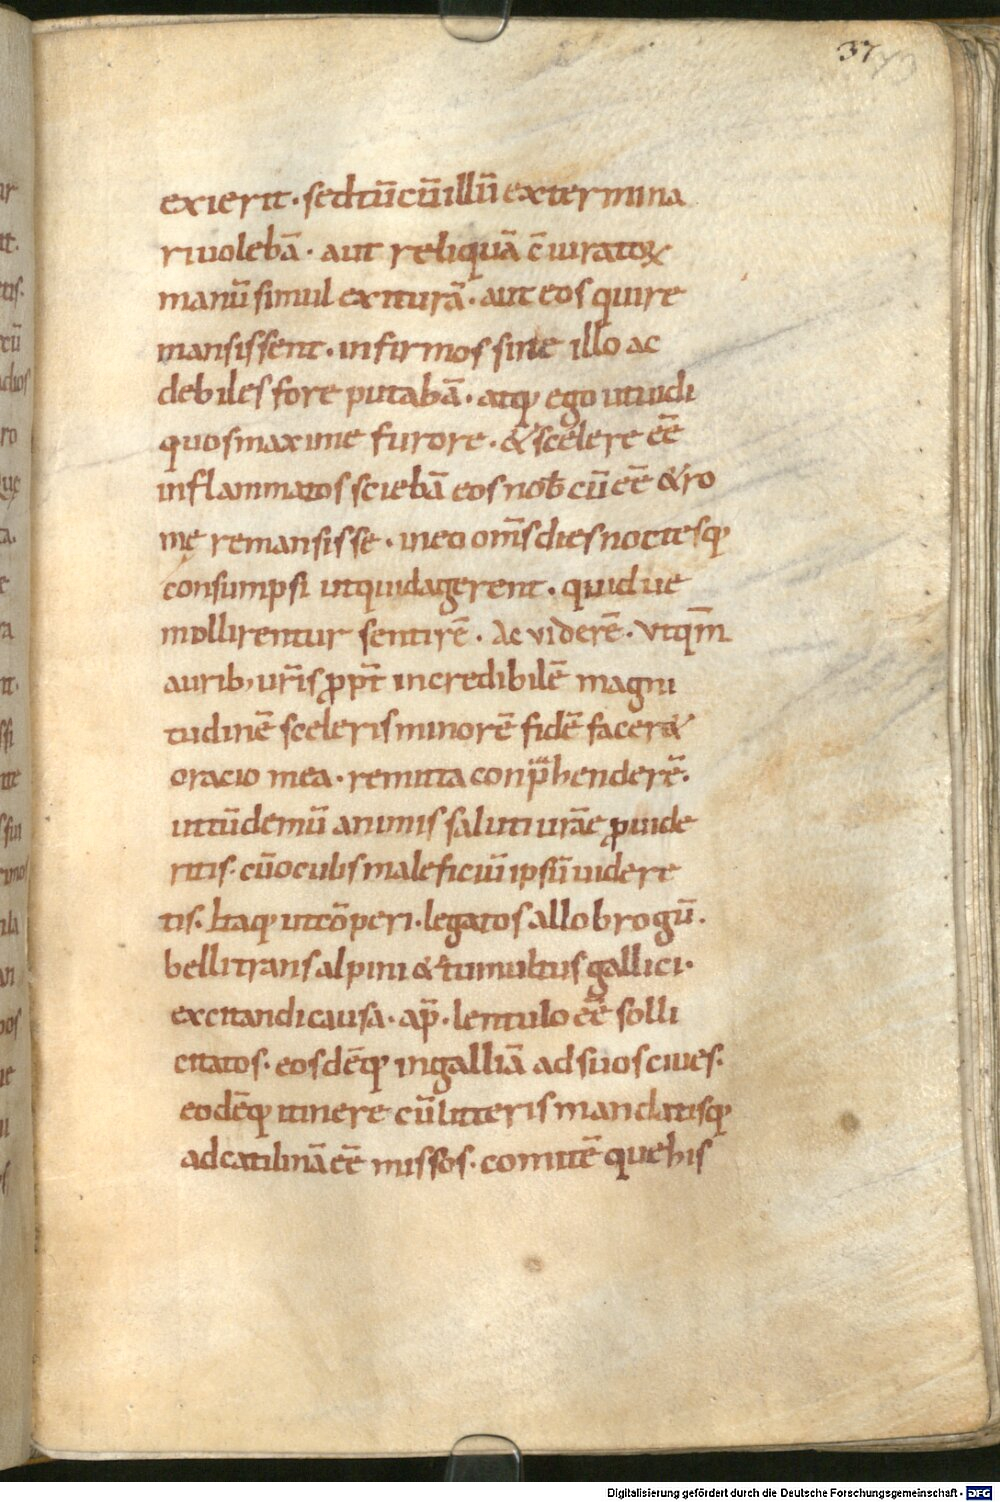 37
exierit · sed tū cū illū extermina
ri uolebā · aut reliquā c̄iuratoꝝ
manū simul exiturā · aut eos qui re
mansissent · infirmos sine illo ac
debiles fore putabā · atq; ego ut uidi
quos maxime furore · & scelere eē
inflammatos sciebā eos nob̄cū eē & ro
mę remansisse · in eo om̄s dies noctesq;
consumpsi ut quid agerent · quid ue
mollirentur sentirē · Ac viderē · vt qm̄
aurib; ur̄is ꝓpt̄ incredibilē magni
tudinē sceleris minorē fidē facer&
oracio mea · rem ita conp̄henderē ·
ut tū demū animis saluti urāe ꝓuide
ritis · cū oculis maleficiū ipsū uidere
tis · Itaq; ut cōperi · legatos allobrogū ·
belli transalpini & tumultus gallici ·
excitandi causa · ap̄ · lentulo eē solli
citatos · eosdēq; in galliā ad suos ciues ·
eodēq; itinere cū litteris mandatisq;
ad catilinā eē missos · comitē que his
Digitalisierung gefördert durch die Deutsche Forschungsgemeinschaft - DFG